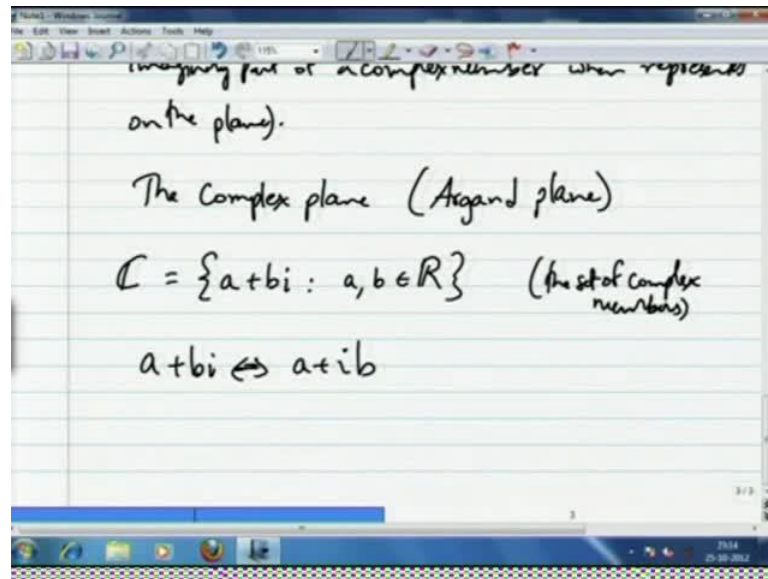 Note1 - Windows Journal
File Edit View Insert Actions Tools Help
Imaginary part of a complex number when represents
on the plane).
The Complex plane (Argand plane)
ℂ = {a+bi : a, b ∈ ℝ} (the set of complex
numbers)
a+bi ⇔ a+ib
3/3
3
25-10-2012